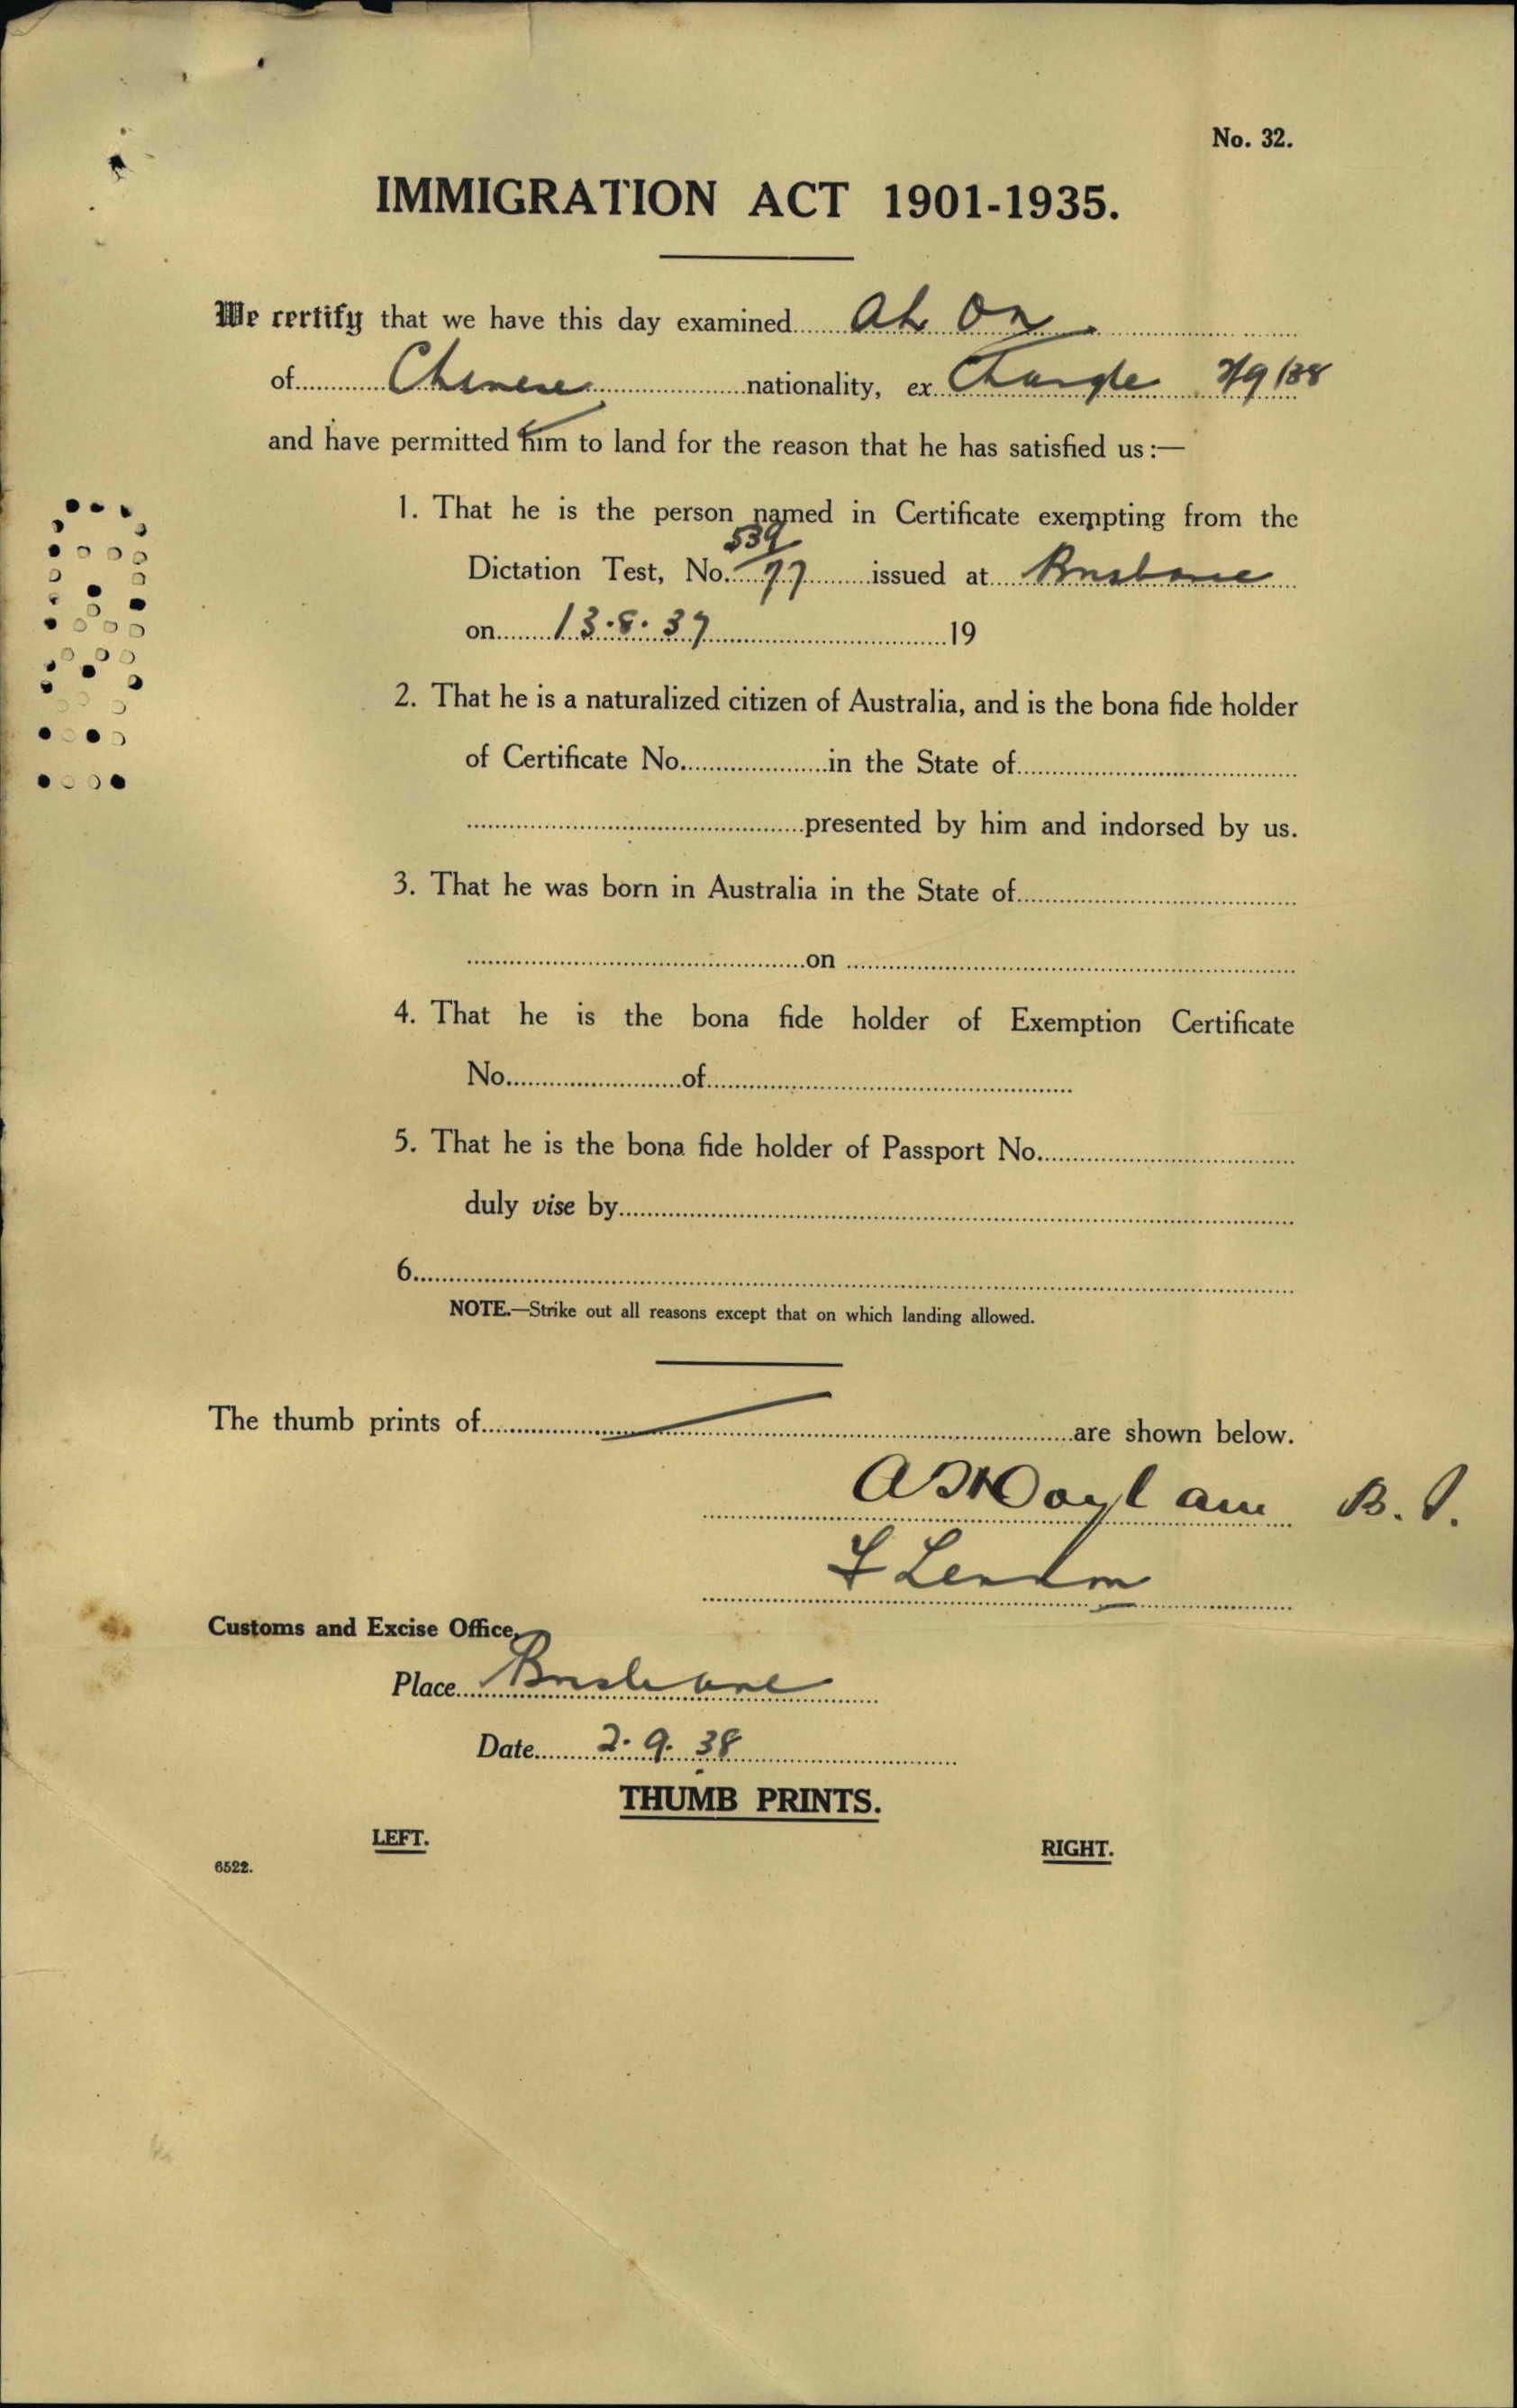 No. 32.
IMMIGRATION ACT 1901-1935.
We certify that we have this day examined Ah On
of Chinese nationality, ex Changte 2/9/38
and have permitted him to land for the reason that he has satisfied us:—
1. That he is the person named in Certificate exempting from the
Dictation Test, No. 539/77 issued at Brisbane
on 13.8.37 19
2. That he is a naturalized citizen of Australia, and is the bona fide holder
of Certificate No. in the State of
presented by him and indorsed by us.
3. That he was born in Australia in the State of
on
4. That he is the bona fide holder of Exemption Certificate
No. of
5. That he is the bona fide holder of Passport No.
duly vise by
6
NOTE.—Strike out all reasons except that on which landing allowed.
The thumb prints of are shown below.
B. I.
Customs and Excise Office,
Place Brisbane
Date 2.9.38
THUMB PRINTS.
LEFT. RIGHT.
6522.